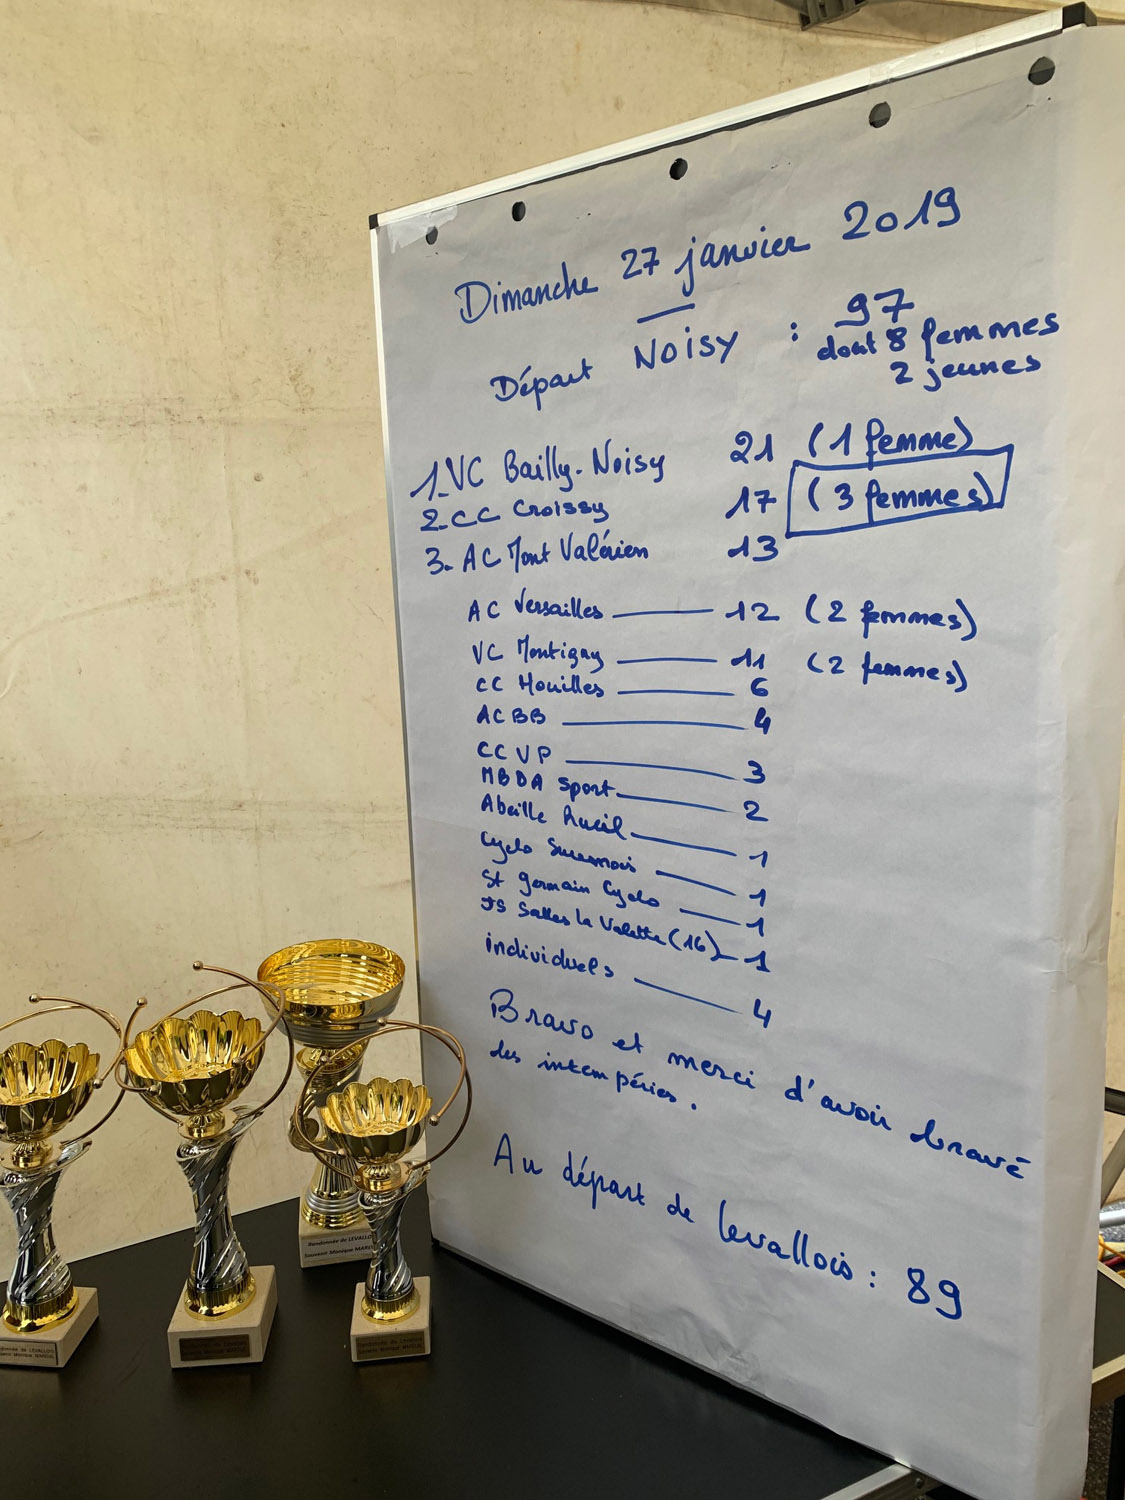 Dimanche 27 janvier 2019
Départ NOISY : 97
dont 8 femmes
2 jeunes
1. VC Bailly-Noisy 21 (1 femme)
2. CC Croissy 17 (3 femmes)
3. AC Mont Valérien 13
AC Versailles 12 (2 femmes)
VC Montigny 11 (2 femmes)
CC Houilles 6
ACBB 4
CCVP 3
MBDA Sport 2
Abeille Rueil 1
Cyclo Suresnois 1
St Germain Cyclo 1
JS Salles la Valette (16) 1
individuels 4
Bravo et merci d'avoir bravé
des intempéries.
Au départ de Levallois : 89
Randonnée de LEVALLO
Souvenir Monique MAREU
Randonnée de LEVALLOIS
Souvenir Monique MAREUIL
Randonnée de LEVALLOIS
Souvenir Monique MAREUIL